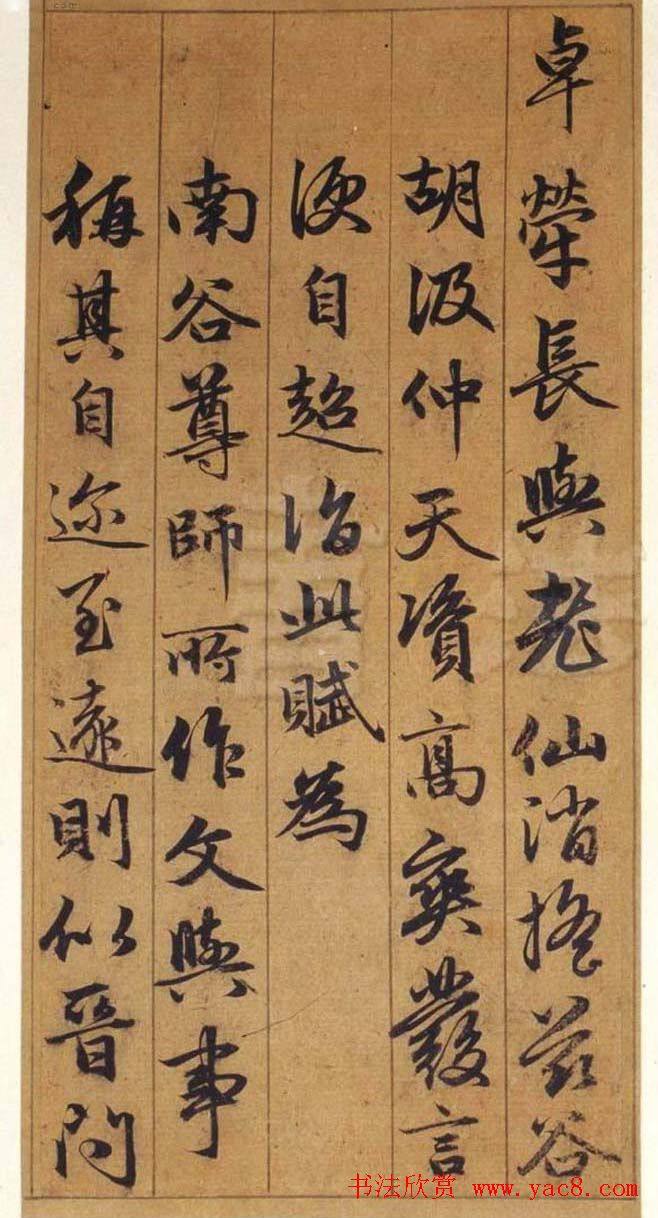 卓犖長與老仙消搖茲谷
胡汲仲天資高爽發言
便自超詣此賦為
南谷尊師所作文與事
稱其自迩至遠則似晉問
书法欣赏 www.yac8.com